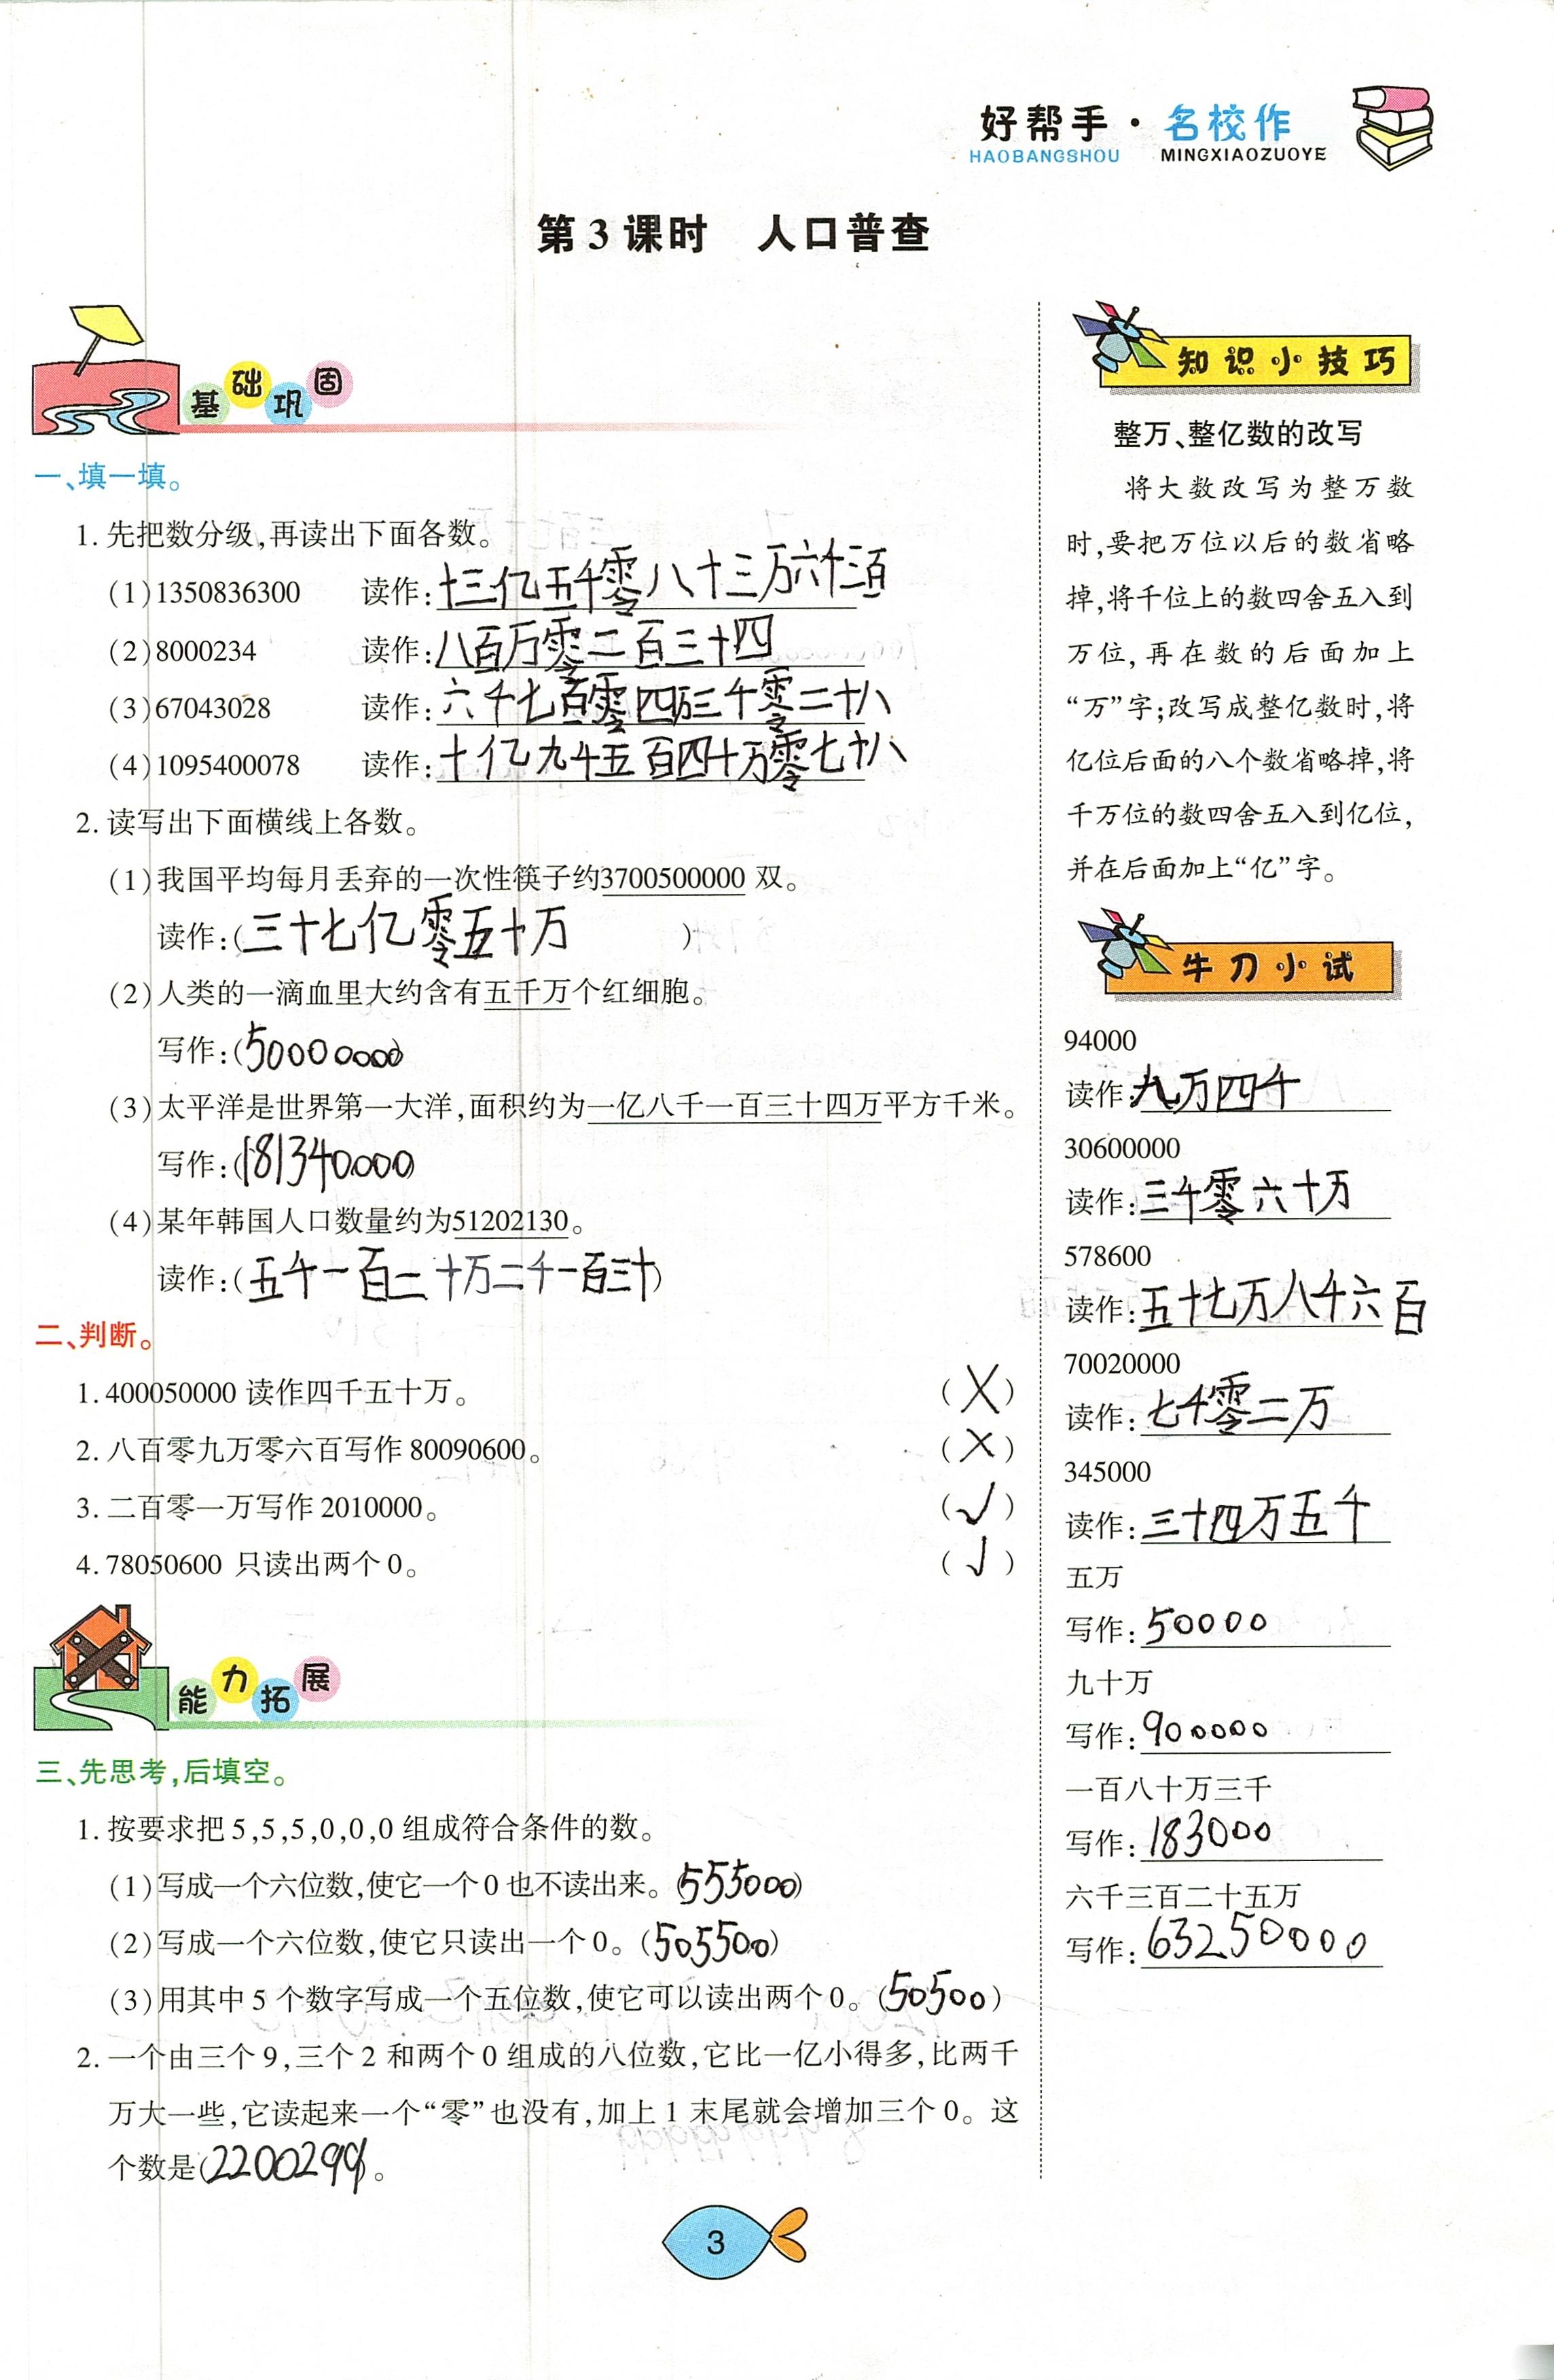 好帮手·名校作
HAOBANGSHOU MINGXIAOZUOYE
第3课时 人口普查
基础巩固
一、填一填。
1.先把数分级,再读出下面各数。
(1)1350836300 读作:十三亿五千零八十三万六千三百
(2)8000234 读作:八百万零二百三十四
(3)67043028 读作:六千七百零四万三千零二十八
(4)1095400078 读作:十亿九千五百四十万零七十八
2.读写出下面横线上各数。
(1)我国平均每月丢弃的一次性筷子约3700500000双。
读作:(三十七亿零五十万)
(2)人类的一滴血里大约含有五千万个红细胞。
写作:(50000000)
(3)太平洋是世界第一大洋,面积约为一亿八千一百三十四万平方千米。
写作:(181340000)
(4)某年韩国人口数量约为51202130。
读作:(五千一百二十万二千一百三十)
二、判断。
1.400050000读作四千五十万。 (X)
2.八百零九万零六百写作80090600。 (×)
3.二百零一万写作2010000。 (√)
4.78050600 只读出两个0。 (√)
能力拓展
三、先思考,后填空。
1.按要求把5,5,5,0,0,0组成符合条件的数。
(1)写成一个六位数,使它一个0也不读出来。(555000)
(2)写成一个六位数,使它只读出一个0。(505500)
(3)用其中5个数字写成一个五位数,使它可以读出两个0。(50500)
2.一个由三个9,三个2和两个0组成的八位数,它比一亿小得多,比两千
万大一些,它读起来一个“零”也没有,加上1末尾就会增加三个0。这
个数是(22002999)。
知识小技巧
整万、整亿数的改写
将大数改写为整万数
时,要把万位以后的数省略
掉,将千位上的数四舍五入到
万位,再在数的后面加上
“万”字;改写成整亿数时,将
亿位后面的八个数省略掉,将
千万位的数四舍五入到亿位,
并在后面加上“亿”字。
牛刀小试
94000
读作:九万四千
30600000
读作:三千零六十万
578600
读作:五十七万八千六百
70020000
读作:七千零二万
345000
读作:三十四万五千
五万
写作:50000
九十万
写作:900000
一百八十万三千
写作:183000
六千三百二十五万
写作:63250000
3